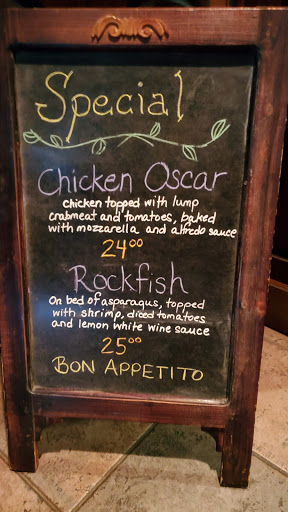 Special
Chicken Oscar
chicken topped with lump
crabmeat and tomatoes, baked
with mozzarella and alfredo sauce
24⁰⁰
Rockfish
On bed of asparagus, topped
with shrimp, diced tomatoes
and lemon white wine sauce
25⁰⁰
BON APPETITO